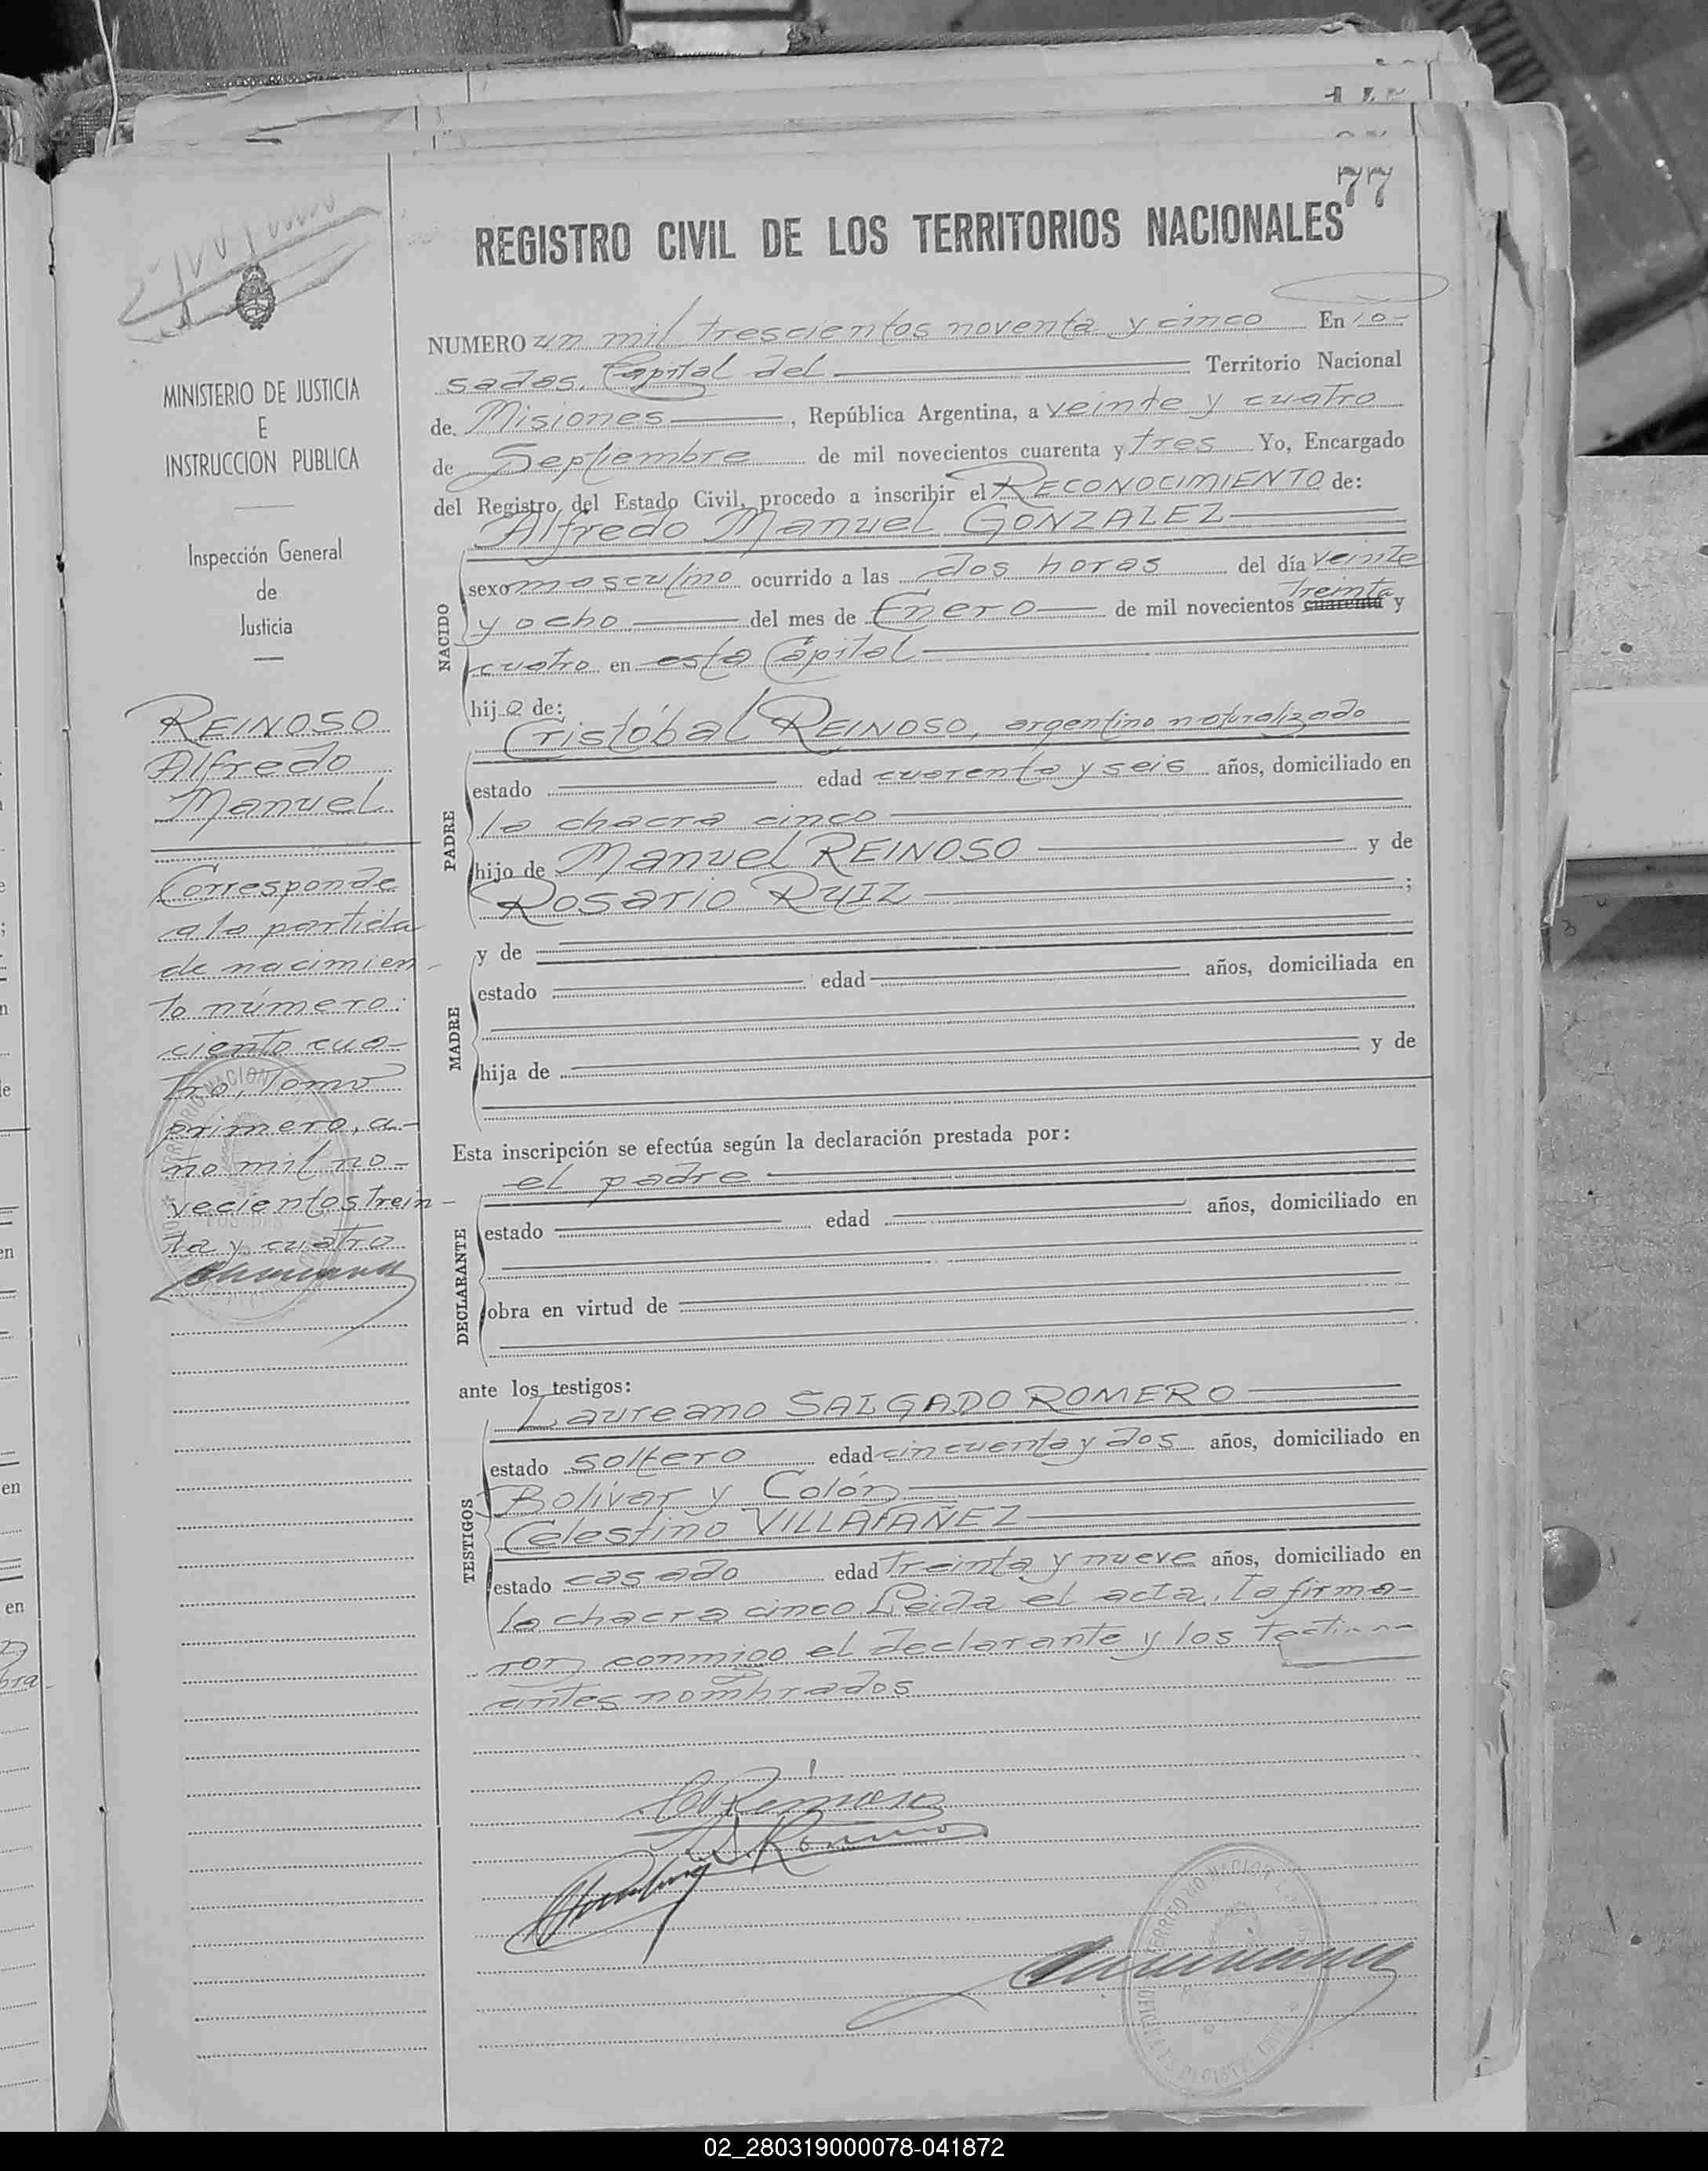 77
REGISTRO CIVIL DE LOS TERRITORIOS NACIONALES
MINISTERIO DE JUSTICIA
E
INSTRUCCION PUBLICA
Inspección General
de
Justicia
REINOSO
Alfredo
Manuel
Corresponde
a la partida
de nacimien-
to número:
ciento cua-
tro, Tomo
primero, a-
ño mil no-
vecientos trein-
ta y cuatro
NUMERO un mil trescientos noventa y cinco En Po-
sadas, Capital del Territorio Nacional
de Misiones, República Argentina, a veinte y cuatro
de Septiembre de mil novecientos cuarenta y tres Yo, Encargado
del Registro del Estado Civil, procedo a inscribir el RECONOCIMIENTO de:
Alfredo Manuel GONZALEZ
NACIDO
sexo masculino ocurrido a las dos horas del día veinte
treinta
y ocho del mes de Enero de mil novecientos cuarenta y
cuatro en esta Capital
hijo de:
Cristóbal REINOSO, argentino naturalizado
PADRE
estado edad cuarenta y seis años, domiciliado en
la chacra cinco
hijo de Manuel REINOSO y de
Rosario RUIZ;
y de
MADRE
estado edad años, domiciliada en
hija de y de
Esta inscripción se efectúa según la declaración prestada por:
el padre
DECLARANTE
estado edad años, domiciliado en
obra en virtud de
ante los testigos:
Laureano SALGADO ROMERO
TESTIGOS
estado soltero edad cincuenta y dos años, domiciliado en
Bolívar y Colón
Celestino VILLAFAÑEZ
estado casado edad treinta y nueve años, domiciliado en
la chacra cinco Leida el acta, la firma-
ron conmigo el declarante y los
antes nombrados
02_280319000078-041872